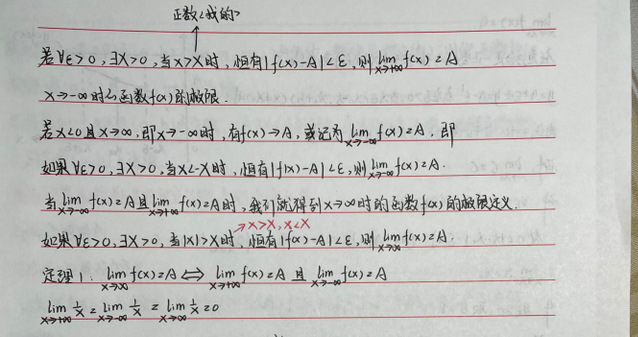 正数<我的>
若∀ε>0,∃X>0,当x>X时,恒有|f(x)-A|<ε,则lim x→+∞ f(x)=A
x→-∞时么函数f(x)的极限.
若x<0且x→∞,即x→-∞时,有f(x)→A,或记为lim x→-∞ f(x)=A.即
如果∀ε>0,∃X>0,当x<-X时,恒有|f(x)-A|<ε,则lim x→-∞ f(x)=A.
当lim x→-∞ f(x)=A且lim x→+∞ f(x)=A时,我们就得到x→∞时的函数f(x)的极限定义.
→x>X,x<X
如果∀ε>0,∃X>0,当|x|>X时,恒有|f(x)-A|<ε,则lim x→∞ f(x)=A.
定理1. lim x→∞ f(x)=A ⟺ lim x→+∞ f(x)=A 且 lim x→-∞ f(x)=A
lim x→+∞ 1/x = lim x→-∞ 1/x = lim x→∞ 1/x = 0